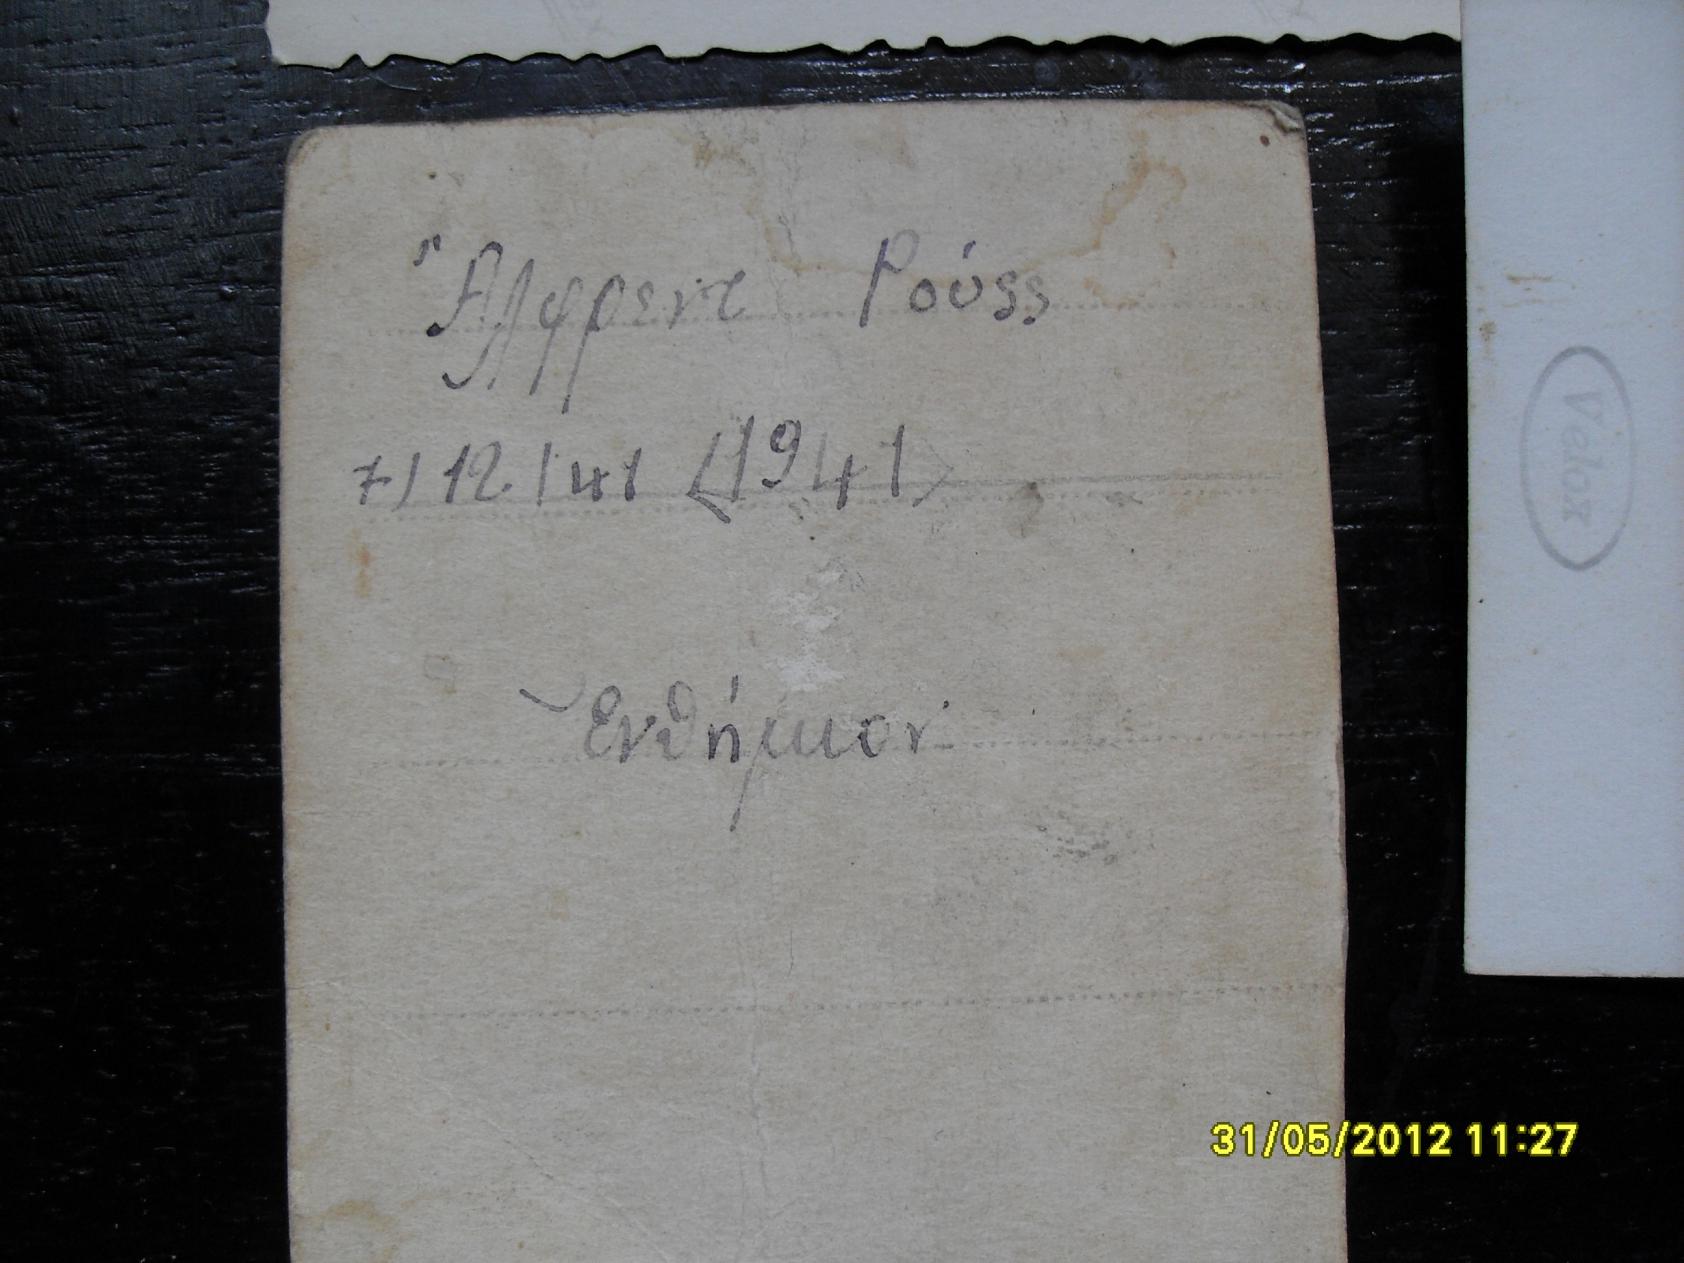 Ἄλφρεντ Ρούσς
7/12/41 <1941>
Ἐνθήμιον
Velox
31/05/2012 11:27